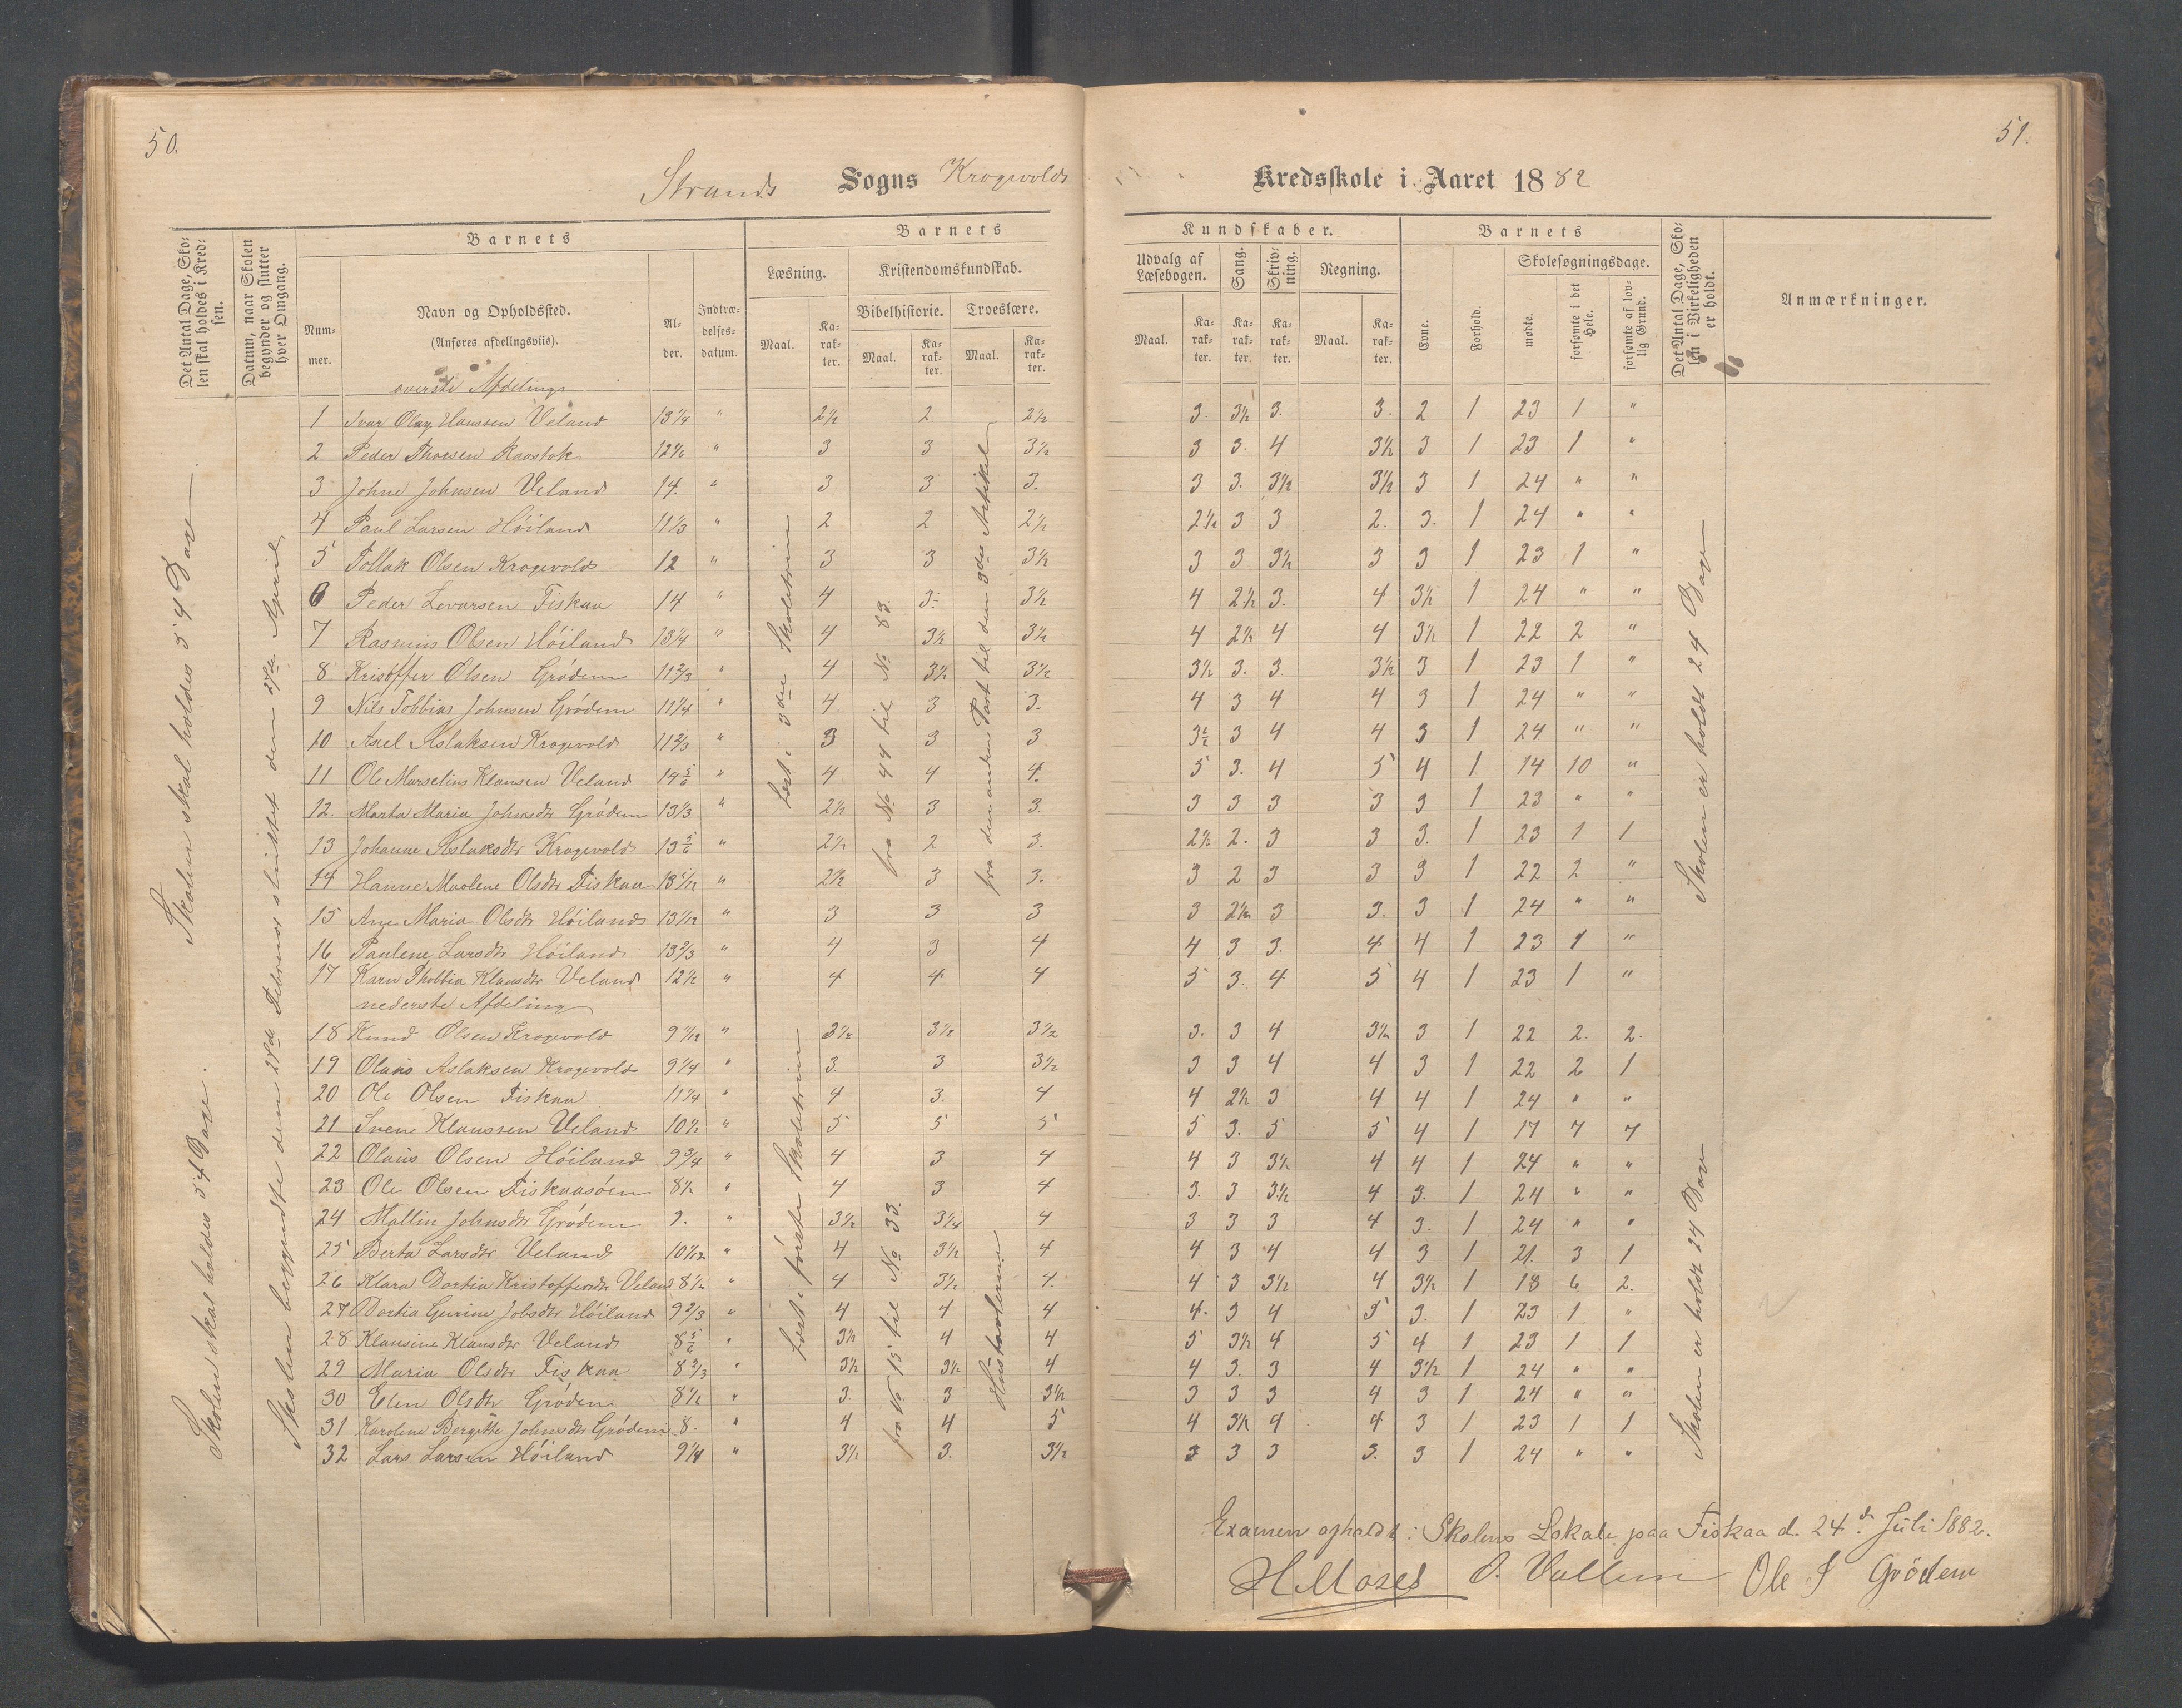 50.
51.
Strands Sogns Krogevolds Kredsskole i Aaret 1882
Det Antal Dage, Skolen skal holdes i Kredsen.
Datum, naar Skolen begynder og slutter hver Omgang.
Barnets
Nummer.
Navn og Opholdssted.
(Anføres afdelingsviis).
Alder.
Indtrædelsesdatum.
Barnets
Læsning.
Maal.
Karakter.
Kristendomskundskab.
Bibelhistorie.
Maal.
Karakter.
Troeslære.
Maal.
Karakter.
Kundskaber.
Udvalg af Læsebogen.
Maal.
Karakter.
Sang.
Karakter.
Skrivning.
Karakter.
Regning.
Maal.
Karakter.
Barnets
Evne.
Forhold.
Skolesøgningsdage.
mødte.
forsømte i det Hele.
forsømte af lovlig Grund.
Det Antal Dage, Skolen i Virkeligheden er holdt.
Anmærkninger.
øverste Afdeling
1 Ivar Olay Hanssen Veland 13 1/4 " 2 1/2 2 2 1/2 3. 3 1/2 3. 3. 2 1 23 1 "
2 Peder Thoresen Ravstok 12 1/6 " 3 3 3 1/2 3 3. 4 3 1/2 3 1 23 1 "
3 Johne Johnsen Veland 14. " 3 3 3. 3 3. 3 1/2 3 1/2 3 1 24 " "
4 Paul Larsen Höiland 11 1/3 " 2 2 2 1/2 2 1/2 3 3 2. 3. 1 24 " "
5 Tollak Olsen Krogevold 12 " 3 3 3 1/2 3 3 3 1/2 3 3 1 23 1 "
6 Peder Levarsen Fiskaa 14 " 4 3. 3 1/2 4 2 1/2 3. 4 3 1/2 1 24 " "
7 Rasmus Olsen Höiland 13 1/4 " 4 3 1/2 3 1/2 4 2 1/2 4 4 3 1/2 1 22 2 "
8 Kristoffer Olsen Gródem 11 2/3 " 4 3 1/2 3 1/2 3 1/2 3. 3. 3 1/2 3 1 23 1 "
9 Nils Tobbias Johnsen Gródem 11 1/4 " 4 3 3. 4 3 4 4 3 1 24 " "
10 Axel Aslaksen Krogevold 11 2/3 " 3 3 3 3 1/2 3 4 4 3 1 24 " "
11 Ole Marselius Klausen Veland 14 5/6 " 4 4 4. 5 3. 4 5 4 1 14 10 "
12. Marta Maria Johnsdtr Gródem 13 1/3 " 2 1/2 3 3. 3 3 3 3 3 1 23 " "
13 Johanne Aslaksdtr Krogevold 13 5/6 " 2 1/2 2 3. 2 1/2 2. 3 3 3. 1 23 1 1
14 Hanne Maolene Olsdtr Fiskaa 13 5/12 " 2 1/2 3 3. 3 2 3 3 3 1 22 2 "
15 Ane Maria Olsdtr Höiland 13 1/12 " 3 3 3 3 2 1/2 3 3. 3 1 24 " "
16 Paulene Larsdtr Höiland 13 2/3 " 4 3 4 4 3 3. 4 4 1 23 1 "
17 Karn Thobbia Klausdtr Veland 12 1/2 " 4 4 4 5 3. 4 5 4 1 23 1 "
nederste Afdeling
18 Knud Olsen Krogevold 9 1/12 " 3 1/2 3 1/2 3 1/2 3. 3 4 3 1/2 3 1 22 2. 2.
19 Olaus Aslaksen Krogevold 9 1/4 " 3. 3 3 1/2 3 3 4 4 3 1 22 2 1
20 Ole Olsen Fiskaa 11 1/4 " 4 3. 4 4 2 1/2 3 4 4 1 24 " "
21 Sven Klaussen Veland 10 1/2 " 5 5 5 5 3. 5 5 4 1 17 7 7
22 Olaus Olsen Höiland 9 3/4 " 4 3 4 4 3 3 1/2 4 4 1 24 " "
23 Ole Olsen Fiskaasöen 8 1/2 " 4 3 4 3. 3 3 1/2 4 3. 1 24 " "
24 Mallin Johnsdtr Gródem 9. " 3 1/2 3 1/4 4 3 3 3 4 3. 1 24 " "
25 Berta Larsdtr Veland 10 1/12 " 4 3 1/2 4 4 3 4 4 3 1 21. 3 1
26 Klara Dortia Kristoffersdtr Veland 8 1/2 " 4 3 1/2 4. 4 3 3 1/2 4 3 1/2 1 18 6 2.
27 Dortia Gurine Johsdtr Höiland 9 2/3 " 4 4 4 4. 3 4 5 3. 1 23 1 "
28 Klausine Klausdtr Veland 8 5/6 " 3 1/2 4 4 5 3 1/2 4 5 4 1 23 1 1
29 Maria Olsdtr Fiskaa 8 2/3 " 3 1/2 3 1/2 4 4 3. 3 4 3 1/2 1 24 " "
30 Elen Olsdtr Gródem 8 1/2 " 3. 3 3 1/2 3 3 3 4 3 1 24 " "
31 Karoline Bergitte Johnsdtr Gródem 8. " 4 4 5 4 3 1/2 4 4 3 1 23 1 1
32 Lars Larsen Höiland 9 1/4 " 3 1/2 3. 3 1/2 3 3 3 3. 3 1 24 " "
Skolen skal holdes 54 Dage
Skolen skal holdes 54 Dage.
Skolen begyndte den 28de Februar sluttet den 27de April
Læst i 3die Skoletrin
fra No 44 til No 83.
fra den anden Part til den 3die Artikel
Læst i første Skoletrin
fra No 15 til No 33.
Hustavlerne
Skolen er holdt 24 Dage
Skolen er holdt 24 Dage
Examen afholdt i Skolens Lokale paa Fiskaa d. 24de Juli 1882.
H Moses O. Vallem Ole J Grödem